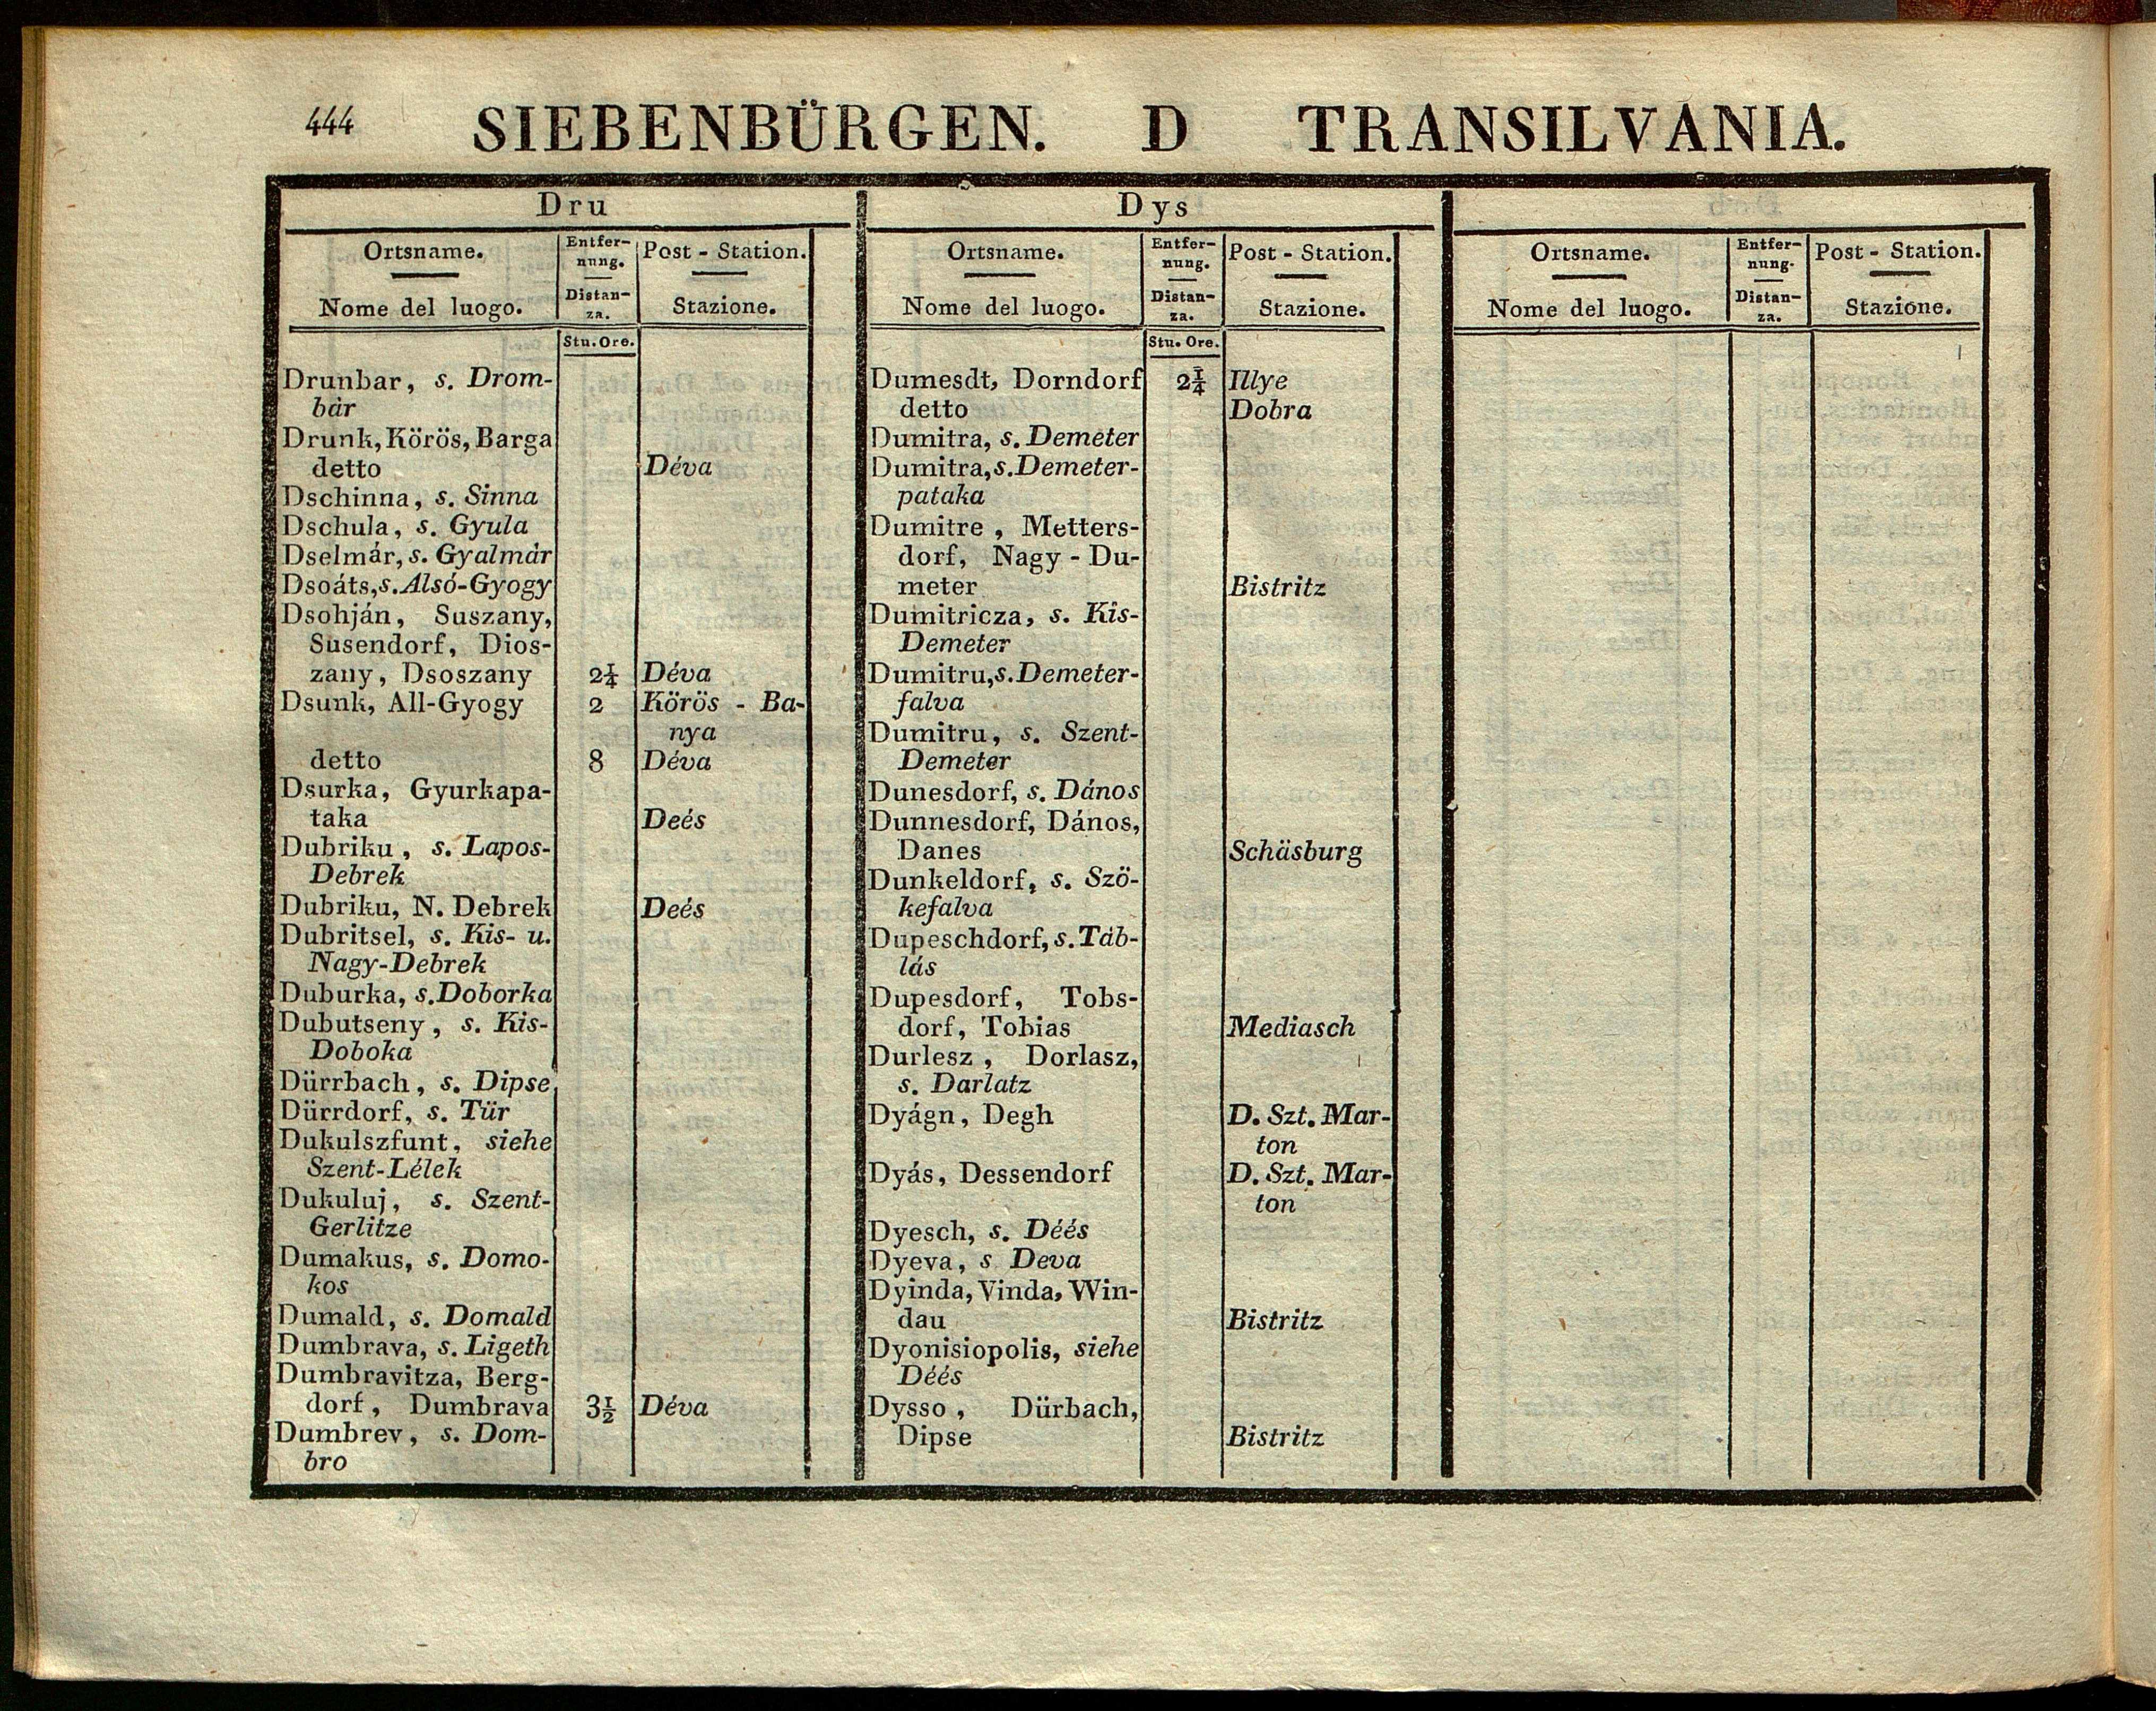 444 SIEBENBÜRGEN. D TRANSILVANIA.
Dru
Ortsname. Entfer- Post - Station.
nung.
Nome del luogo. Distan- Stazione.
za.
Stu. Ore.
Drunbar, s. Drom-
bár
Drunk, Körös, Barga
detto Déva
Dschinna, s. Sinna
Dschula, s. Gyula
Dselmár, s. Gyalmár
Dsoáts, s. Alsó-Gyogy
Dsohján, Suszany,
Susendorf, Dios-
zany, Dsoszany 2¼ Déva
Dsunk, All-Gyogy 2 Körös - Ba-
nya
detto 8 Déva
Dsurka, Gyurkapa-
taka Deés
Dubriku, s. Lapos-
Debrek
Dubriku, N. Debrek Deés
Dubritsel, s. Kis- u.
Nagy-Debrek
Duburka, s. Doborka
Dubutseny, s. Kis-
Doboka
Dürrbach, s. Dipse
Dürrdorf, s. Tür
Dukulszfunt, siehe
Szent-Lélek
Dukuluj, s. Szent-
Gerlitze
Dumakus, s. Domo-
kos
Dumald, s. Domald
Dumbrava, s. Ligeth
Dumbravitza, Berg-
dorf, Dumbrava 3½ Déva
Dumbrev, s. Dom-
bro
Dys
Ortsname. Entfer- Post - Station.
nung.
Nome del luogo. Distan- Stazione.
za.
Stu. Ore.
Dumesdt, Dorndorf 2¼ Illye
detto Dobra
Dumitra, s. Demeter
Dumitra, s. Demeter-
pataka
Dumitre, Metters-
dorf, Nagy - Du-
meter Bistritz
Dumitricza, s. Kis-
Demeter
Dumitru, s. Demeter-
falva
Dumitru, s. Szent-
Demeter
Dunesdorf, s. Dános
Dunnesdorf, Dános,
Danes Schäsburg
Dunkeldorf, s. Szö-
kefalva
Dupeschdorf, s. Táb-
lás
Dupesdorf, Tobs-
dorf, Tobias Mediasch
Durlesz, Dorlasz,
s. Darlatz
Dyágn, Degh D. Szt. Mar-
ton
Dyás, Dessendorf D. Szt. Mar-
ton
Dyesch, s. Déés
Dyeva, s Deva
Dyinda, Vinda, Win-
dau Bistritz
Dyonisiopolis, siehe
Déés
Dysso, Dürbach,
Dipse Bistritz
Ortsname. Entfer- Post - Station.
nung.
Nome del luogo. Distan- Stazione.
za.